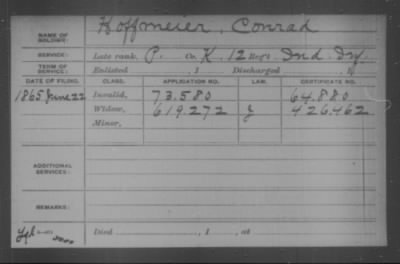 NAME OF SOLDIER: Hoffmeier, Conrad
SERVICE: Late rank, P. Co. K, 12 Reg't Ind. Inf.
TERM OF SERVICE: Enlisted , 1 Discharged , 1
DATE OF FILING. CLASS. APPLICATION NO. LAW. CERTIFICATE NO.
1865 June 22 Invalid, 73.580 64.880
Widow, 619.272 J 426.462
Minor,
ADDITIONAL SERVICES:
REMARKS:
Died , 1 , at